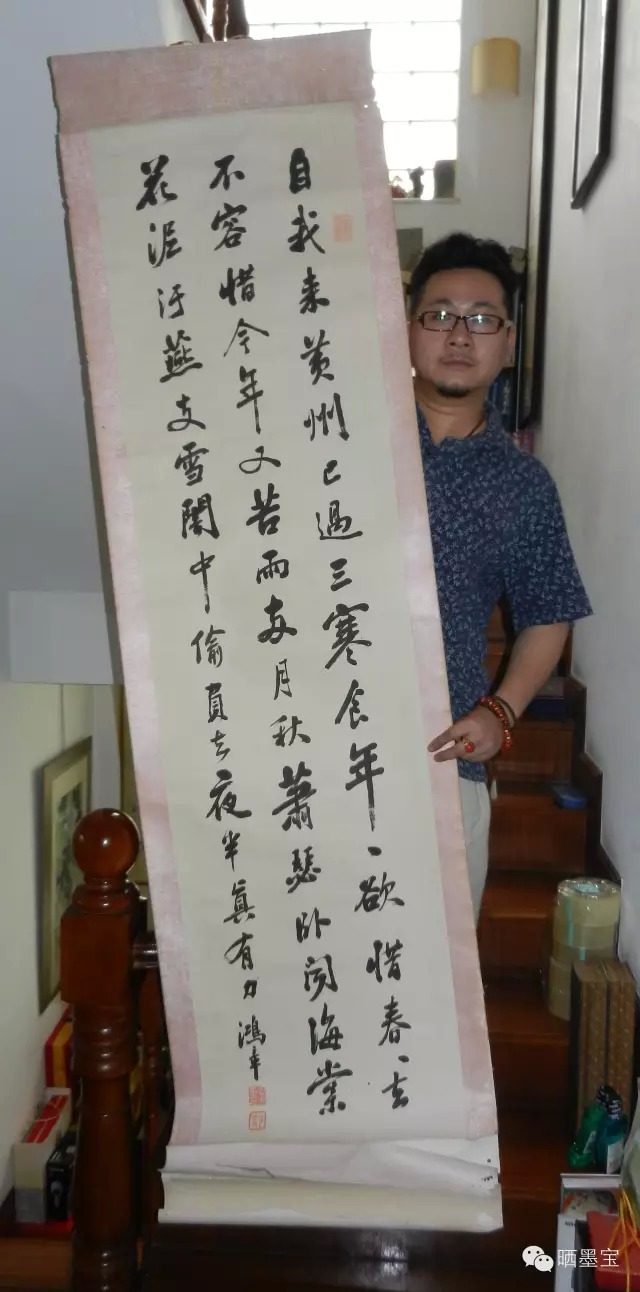 自我来黄州已過三寒食年、欲惜春、去
不容惜今年又苦雨两月秋蕭瑟卧闻海棠
花泥汙燕支雪闇中偷負去夜半真有力 鴻
晒墨宝